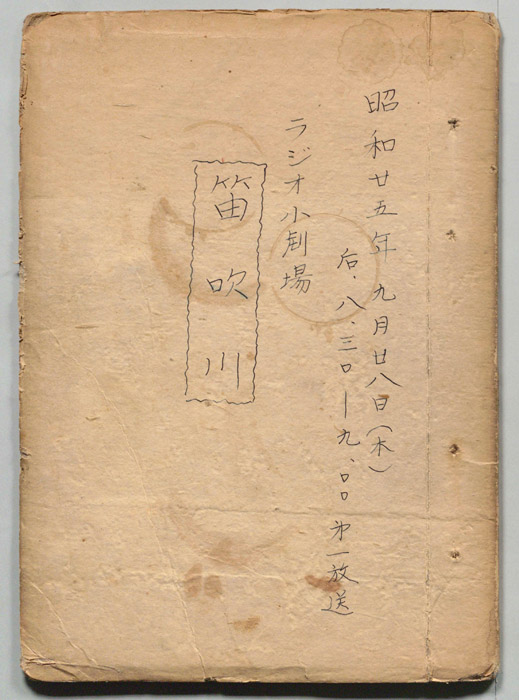 昭和廿五年九月廿八日(木)
后.八.三〇ー九、〇〇 第一放送
ラジオ小劇場
笛吹川